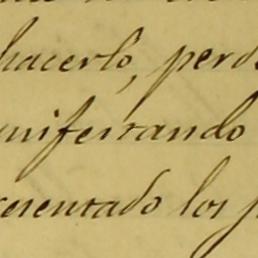 hacerlo, perd
nifestando
resentado los p